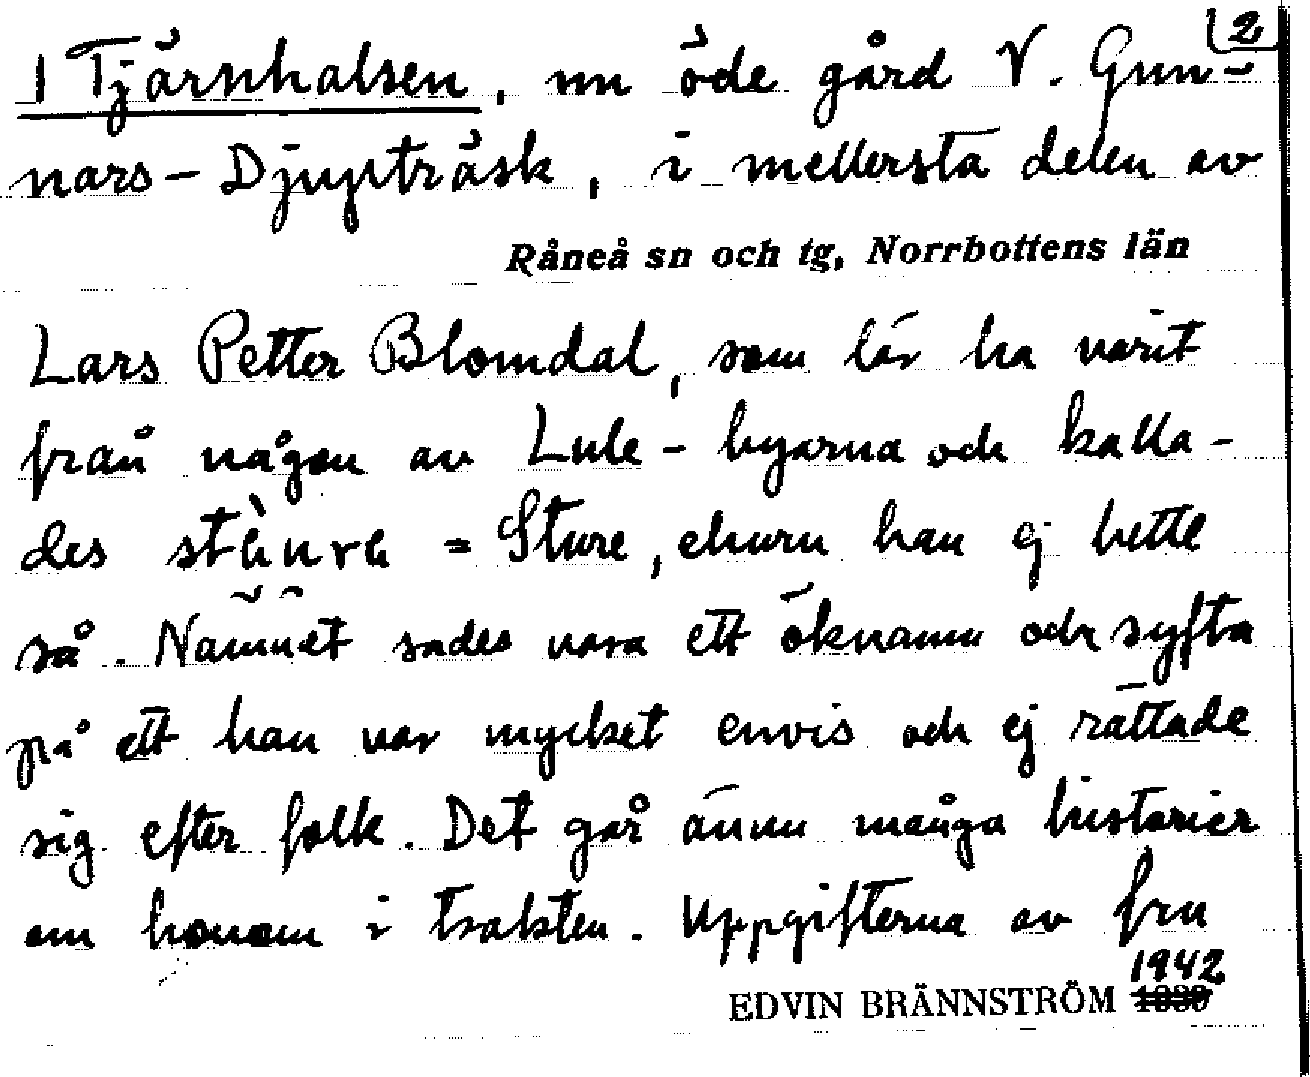 2
1 Tjärnhalsen, nu öde gård V. Gun-
nars-Djupträsk, i mellersta delen av
Råneå sn och tg, Norrbottens län
Lars Petter Blomdal, som lär ha varit
från någon av Lule-byarna och kalla-
des = Sture, ehuru han ej hette
så. Namnet sades vara ett öknamn och syfta
på att han var mycket envis och ej rättade
sig efter folk. Det går ännu många historier
om honom i trakten. Uppgifterna av fru
1942
EDVIN BRÄNNSTRÖM